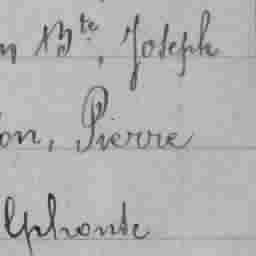 n Bte, Joseph
on, Pierre
lphonse